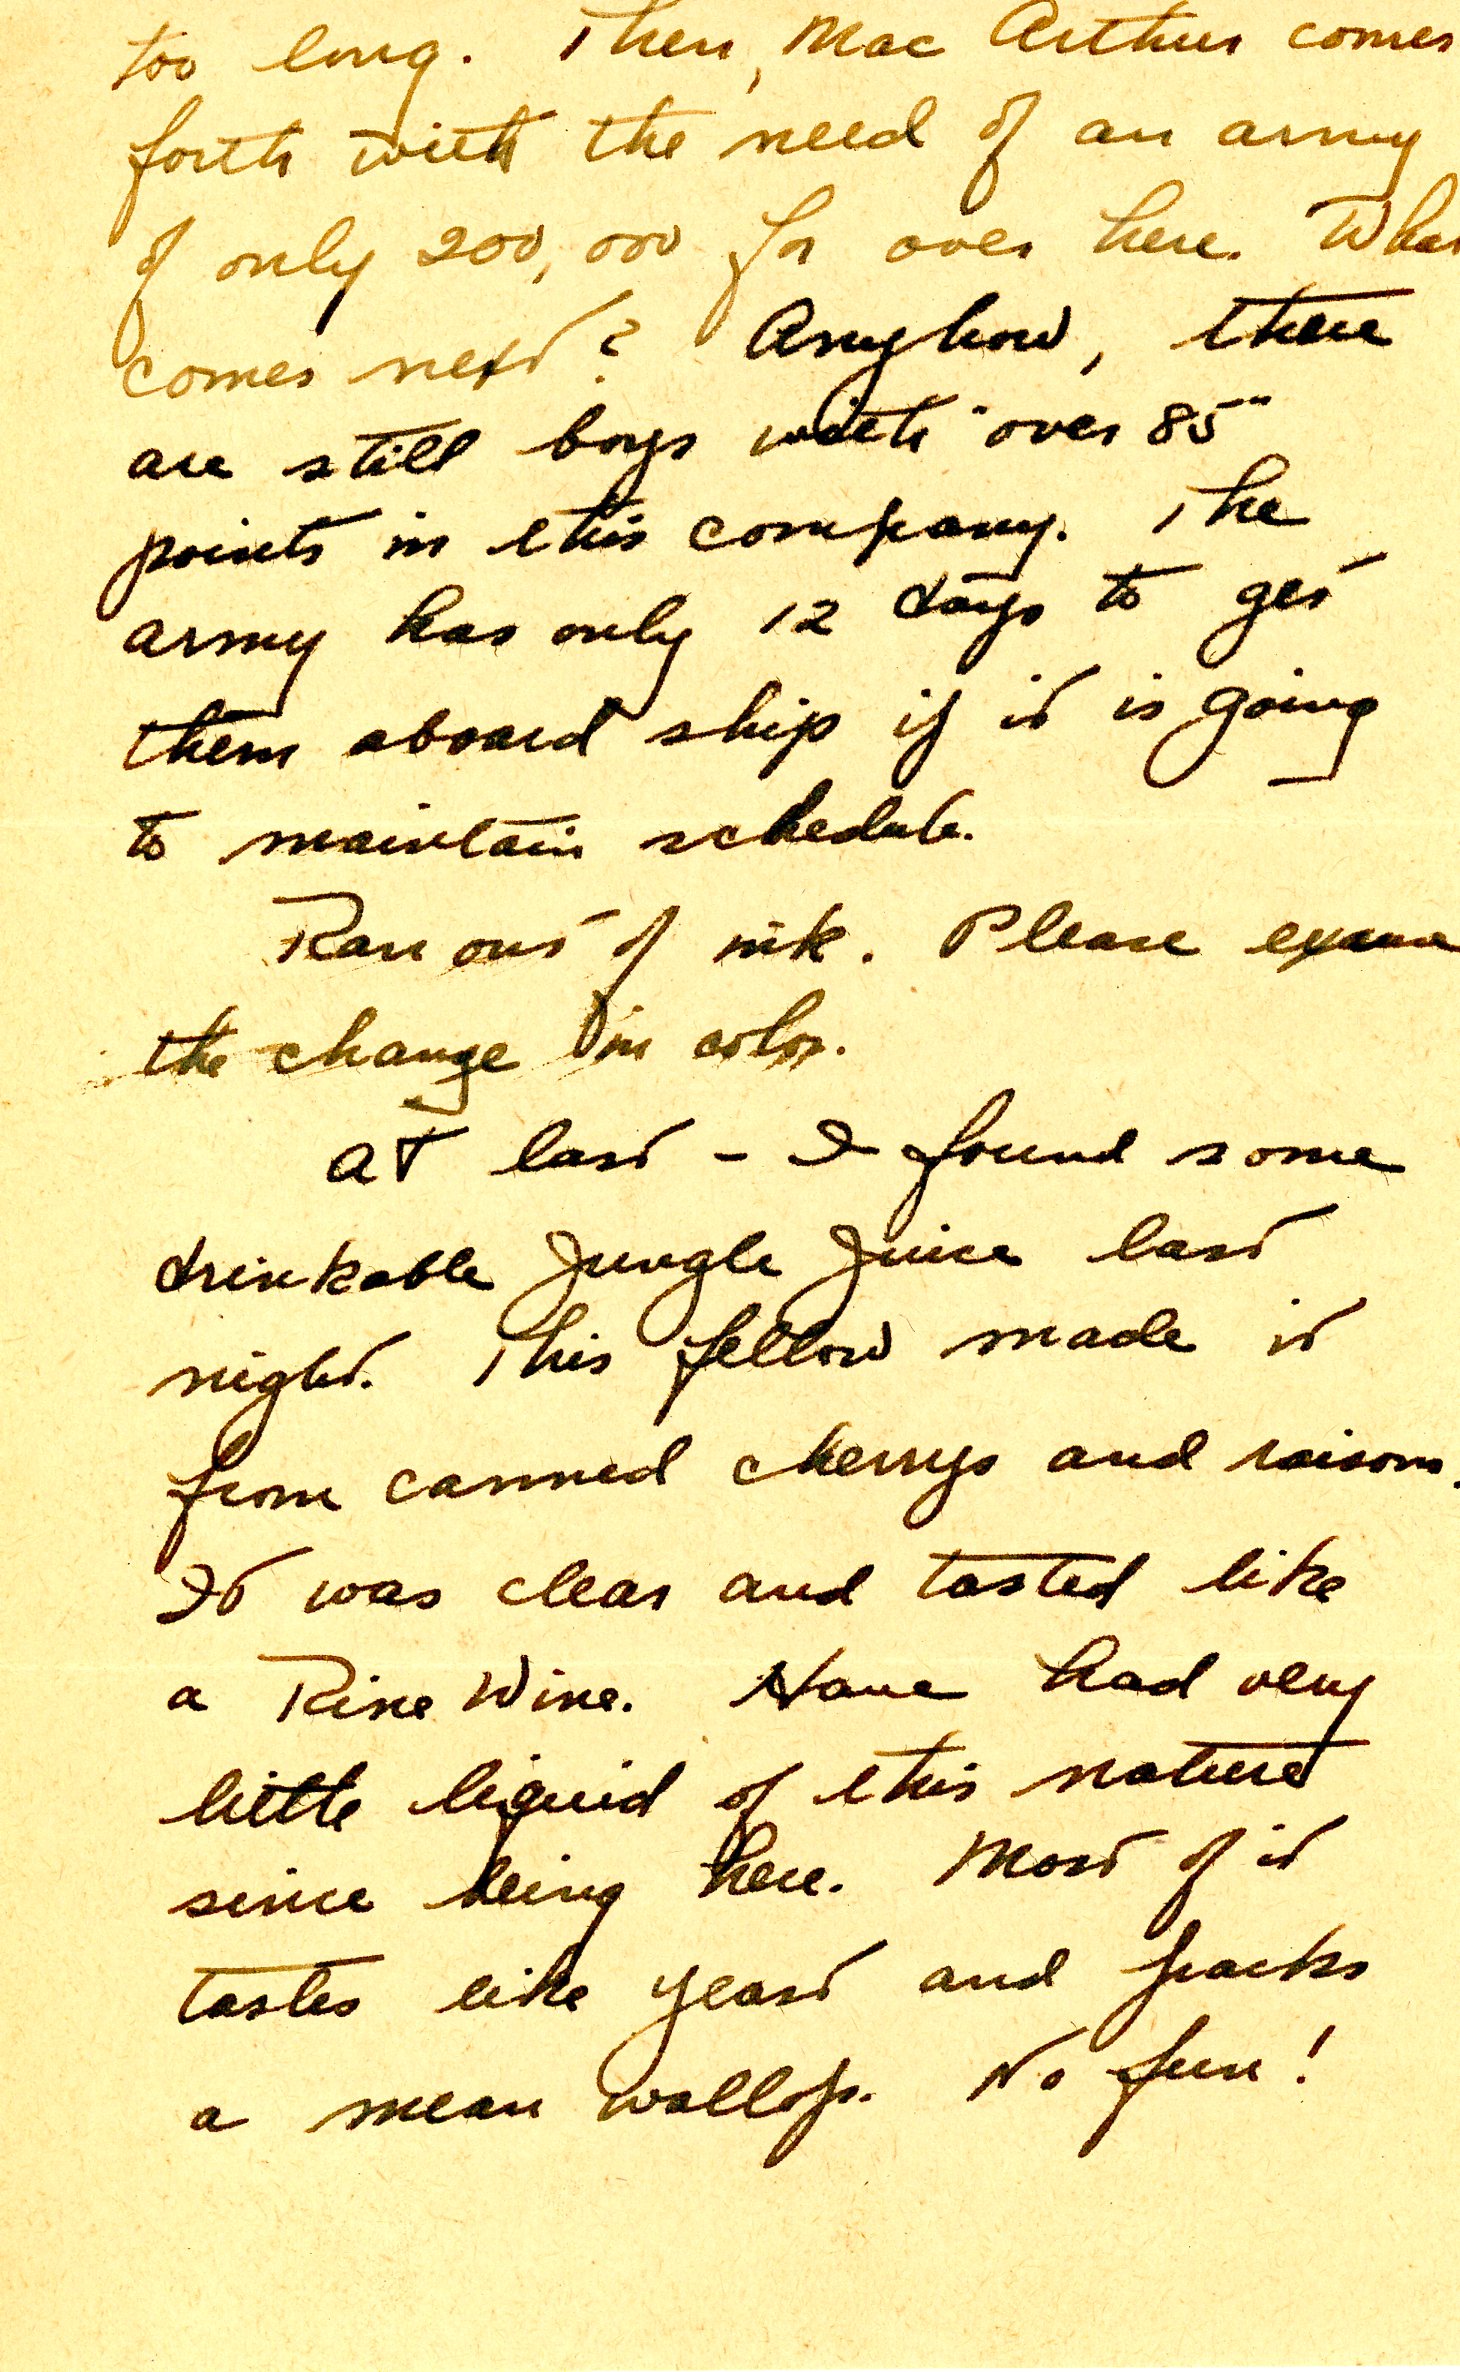 too long. Then, Mac Arthur comes
forth with the need of an army
of only 200,000 for over here. What
comes next? Anyhow, there
are still boys with "over 85"
points in this company. The
army has only 12 days to get
them aboard ship if it is going
to maintain schedule.
Ran out of ink. Please excuse
the change in color.
At last - I found some
drinkable Jungle Juice last
night. This fellow made it
from canned cherrys and raisons.
It was clear and tasted like
a Rine Wine. Have had very
little liquid of this nature
since being here. Most of it
tastes like yeast and packs
a mean wallop. No fun!